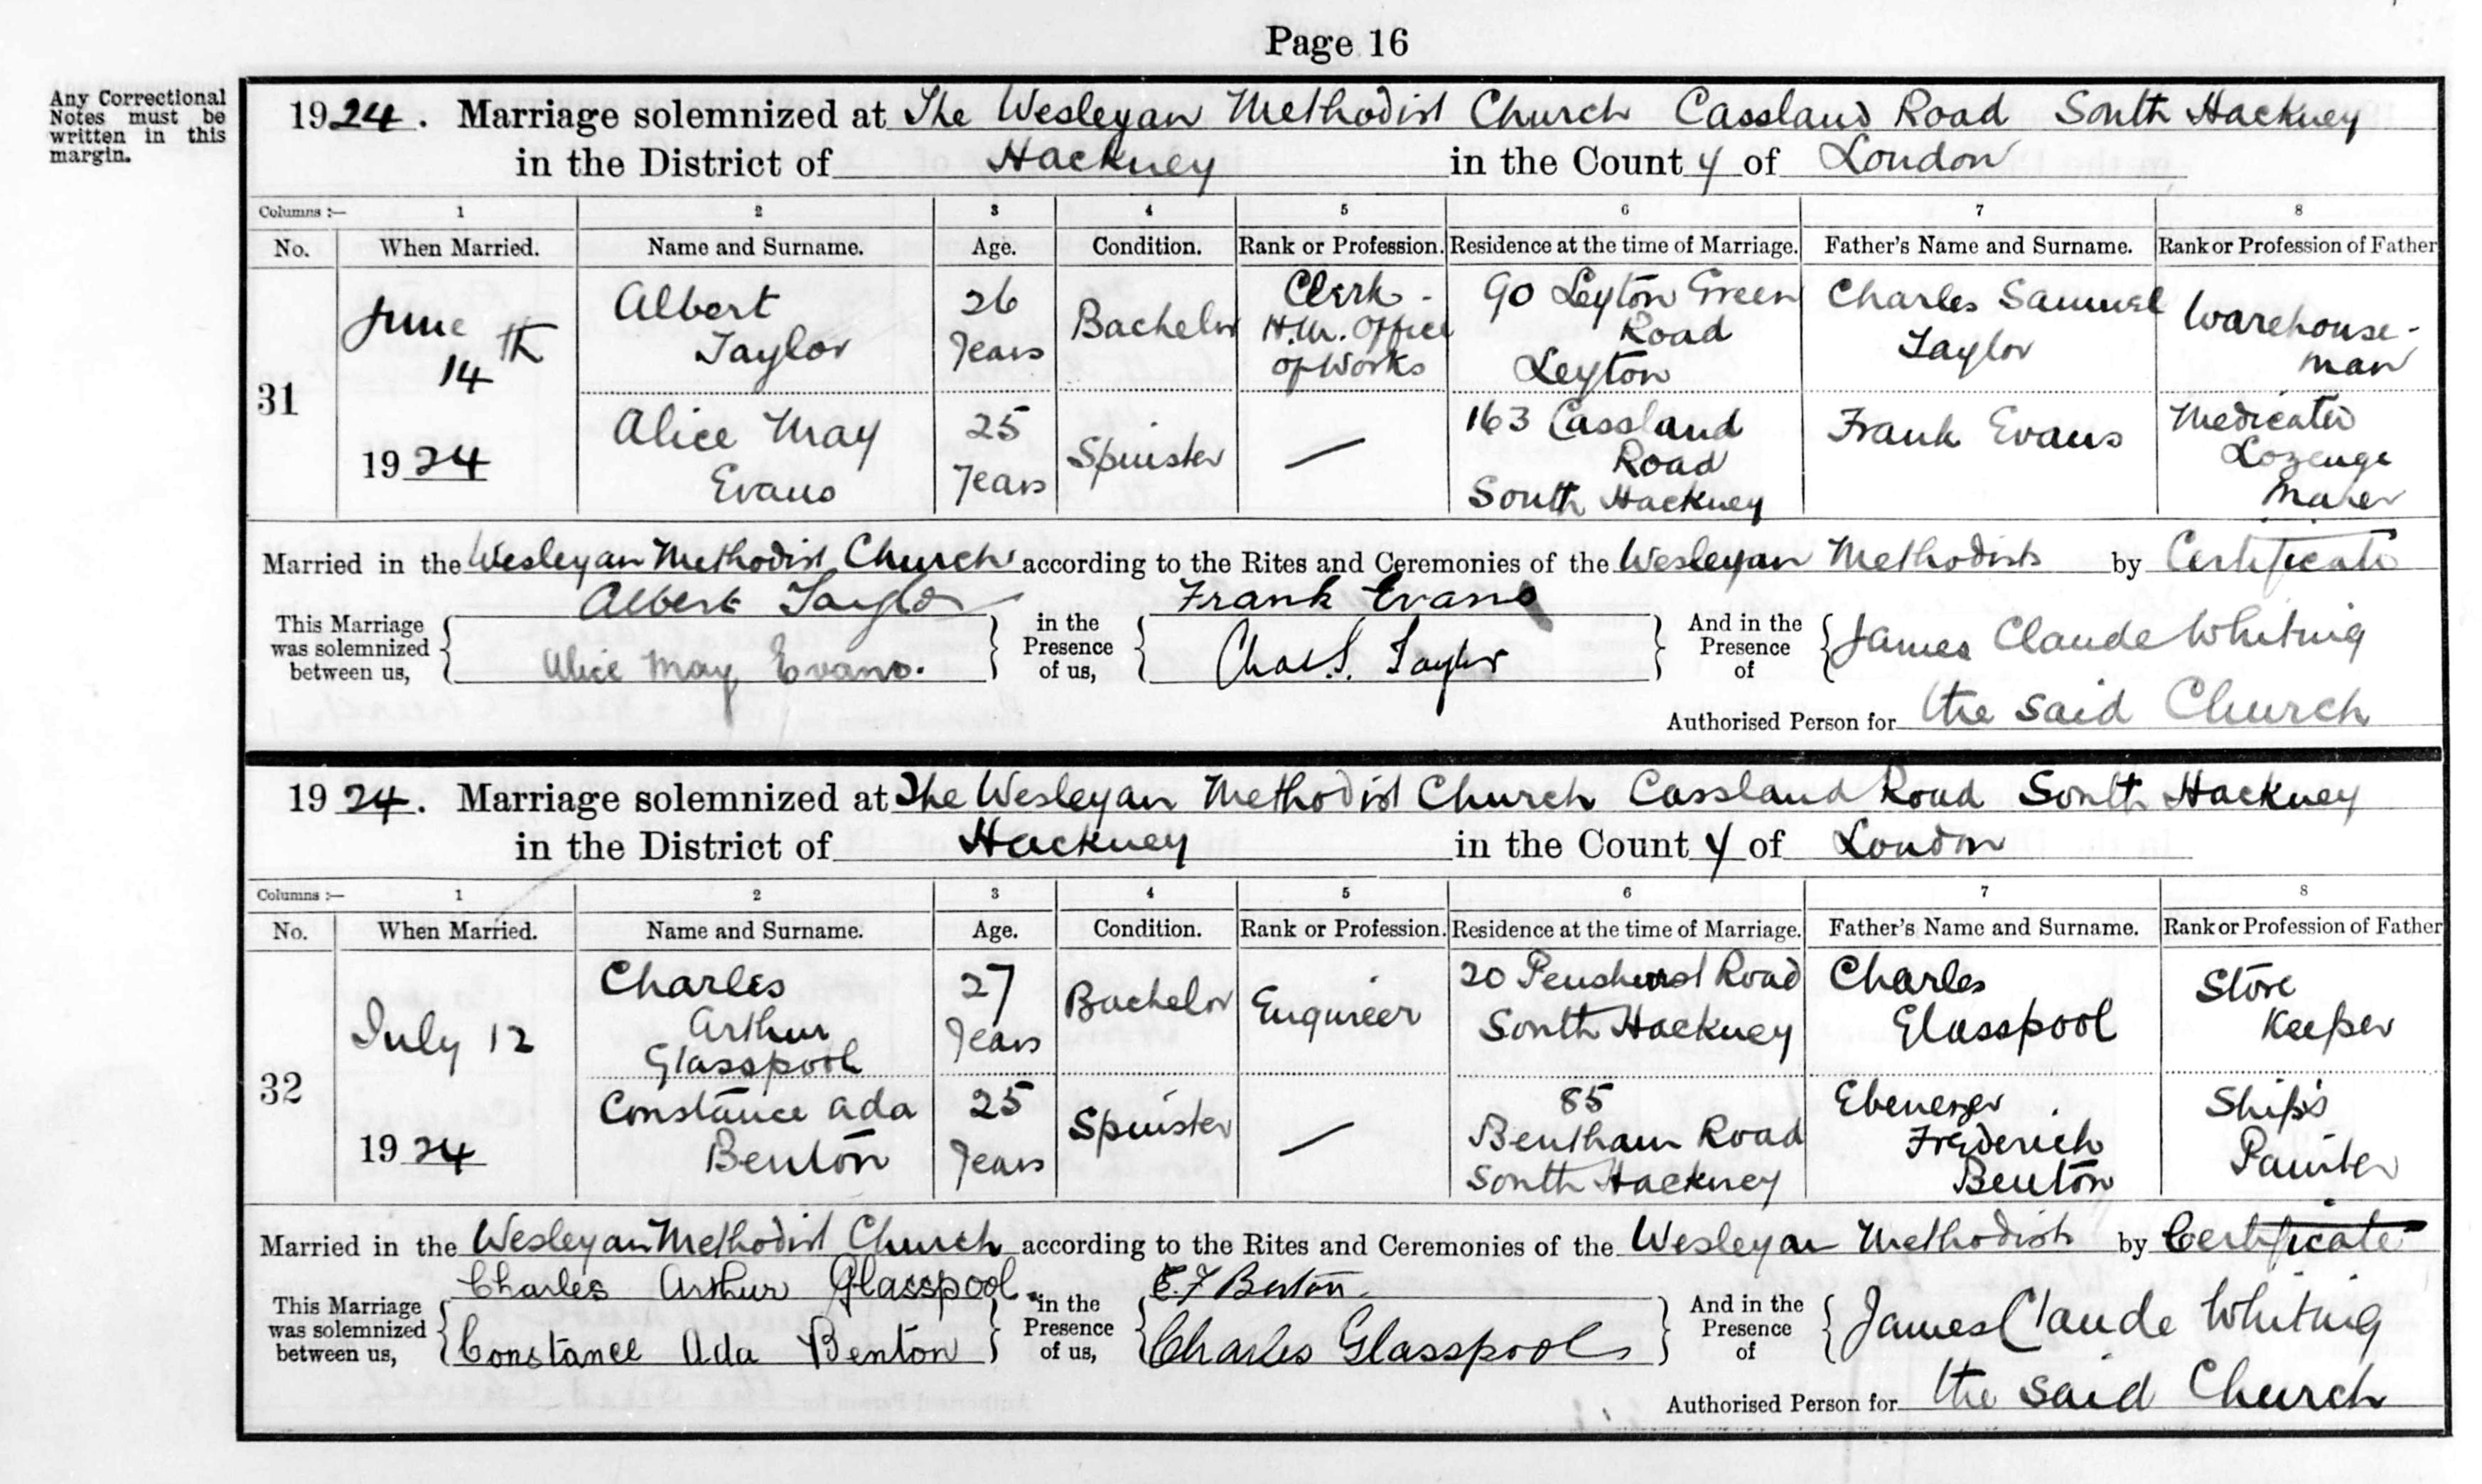 Page 16
Any Correctional
Notes must be
written in this
margin.
1924. Marriage solemnized at The Wesleyan Methodist Church Cassland Road South Hackney
in the District of Hackney in the County of London
Columns :— 1 2 3 4 5 6 7 8
No. When Married. Name and Surname. Age. Condition. Rank or Profession. Residence at the time of Marriage. Father's Name and Surname. Rank or Profession of Father
31
June
14th
1924
Albert
Taylor
26
Years
Bachelor
Clerk -
H.M. Office
of Works
90 Leyton Green
Road
Leyton
Charles Samuel
Taylor
Warehouse-
man
Alice May
Evans
25
Years
Spinster
—
163 Cassland
Road
South Hackney
Frank Evans
Medicated
Lozenge
Maker
Married in the Wesleyan Methodist Church according to the Rites and Ceremonies of the Wesleyan Methodists by Certificate
This Marriage
was solemnized
between us,
Albert Taylor
Alice May Evans.
in the
Presence
of us,
Frank Evans
Chas. S. Taylor
And in the
Presence
of
James Claude Whiting
Authorised Person for the said Church
1924. Marriage solemnized at The Wesleyan Methodist Church Cassland Road South Hackney
in the District of Hackney in the County of London
Columns :— 1 2 3 4 5 6 7 8
No. When Married. Name and Surname. Age. Condition. Rank or Profession. Residence at the time of Marriage. Father's Name and Surname. Rank or Profession of Father
32
July 12
1924
Charles
Arthur
Glasspool
27
Years
Bachelor
Engineer
20 Penshurst Road
South Hackney
Charles
Glasspool
Store
Keeper
Constance Ada
Benton
25
Years
Spinster
—
85
Bentham Road
South Hackney
Ebenezer
Frederick
Benton
Ship's
Painter
Married in the Wesleyan Methodist Church according to the Rites and Ceremonies of the Wesleyan Methodists by Certificate
This Marriage
was solemnized
between us,
Charles Arthur Glasspool.
Constance Ada Benton
in the
Presence
of us,
E. F Benton
Charles Glasspool
And in the
Presence
of
James Claude Whiting
Authorised Person for the said Church